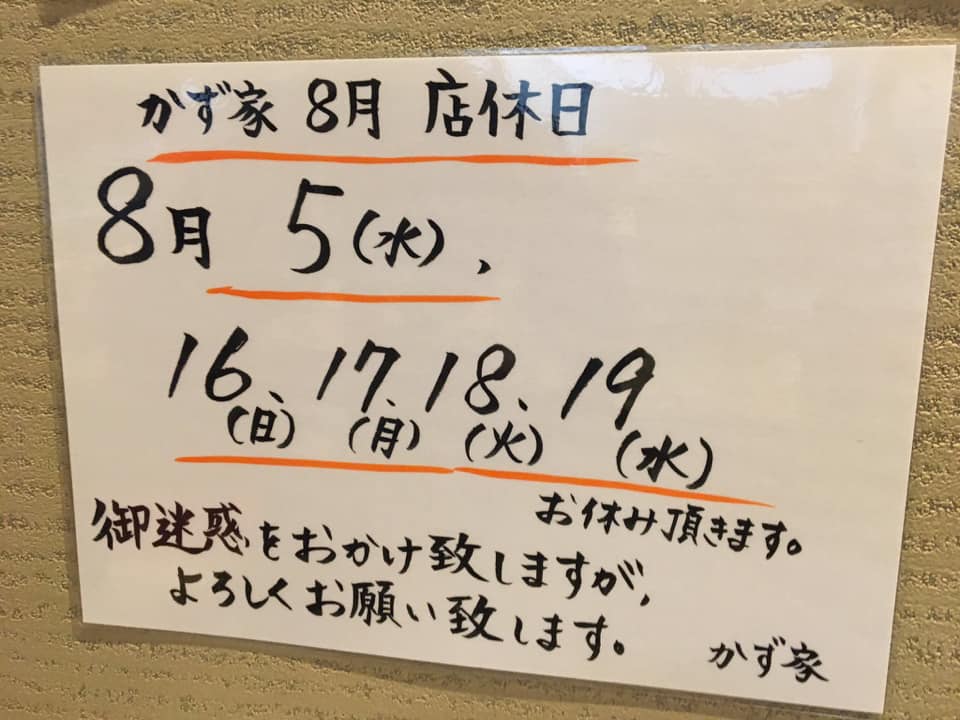 かず家 8月 店休日
8月 5(水)、
16、17、18、19
(日) (月) (火) (水)
お休み頂きます。
御迷惑をおかけ致しますが、
よろしくお願い致します。
かず家